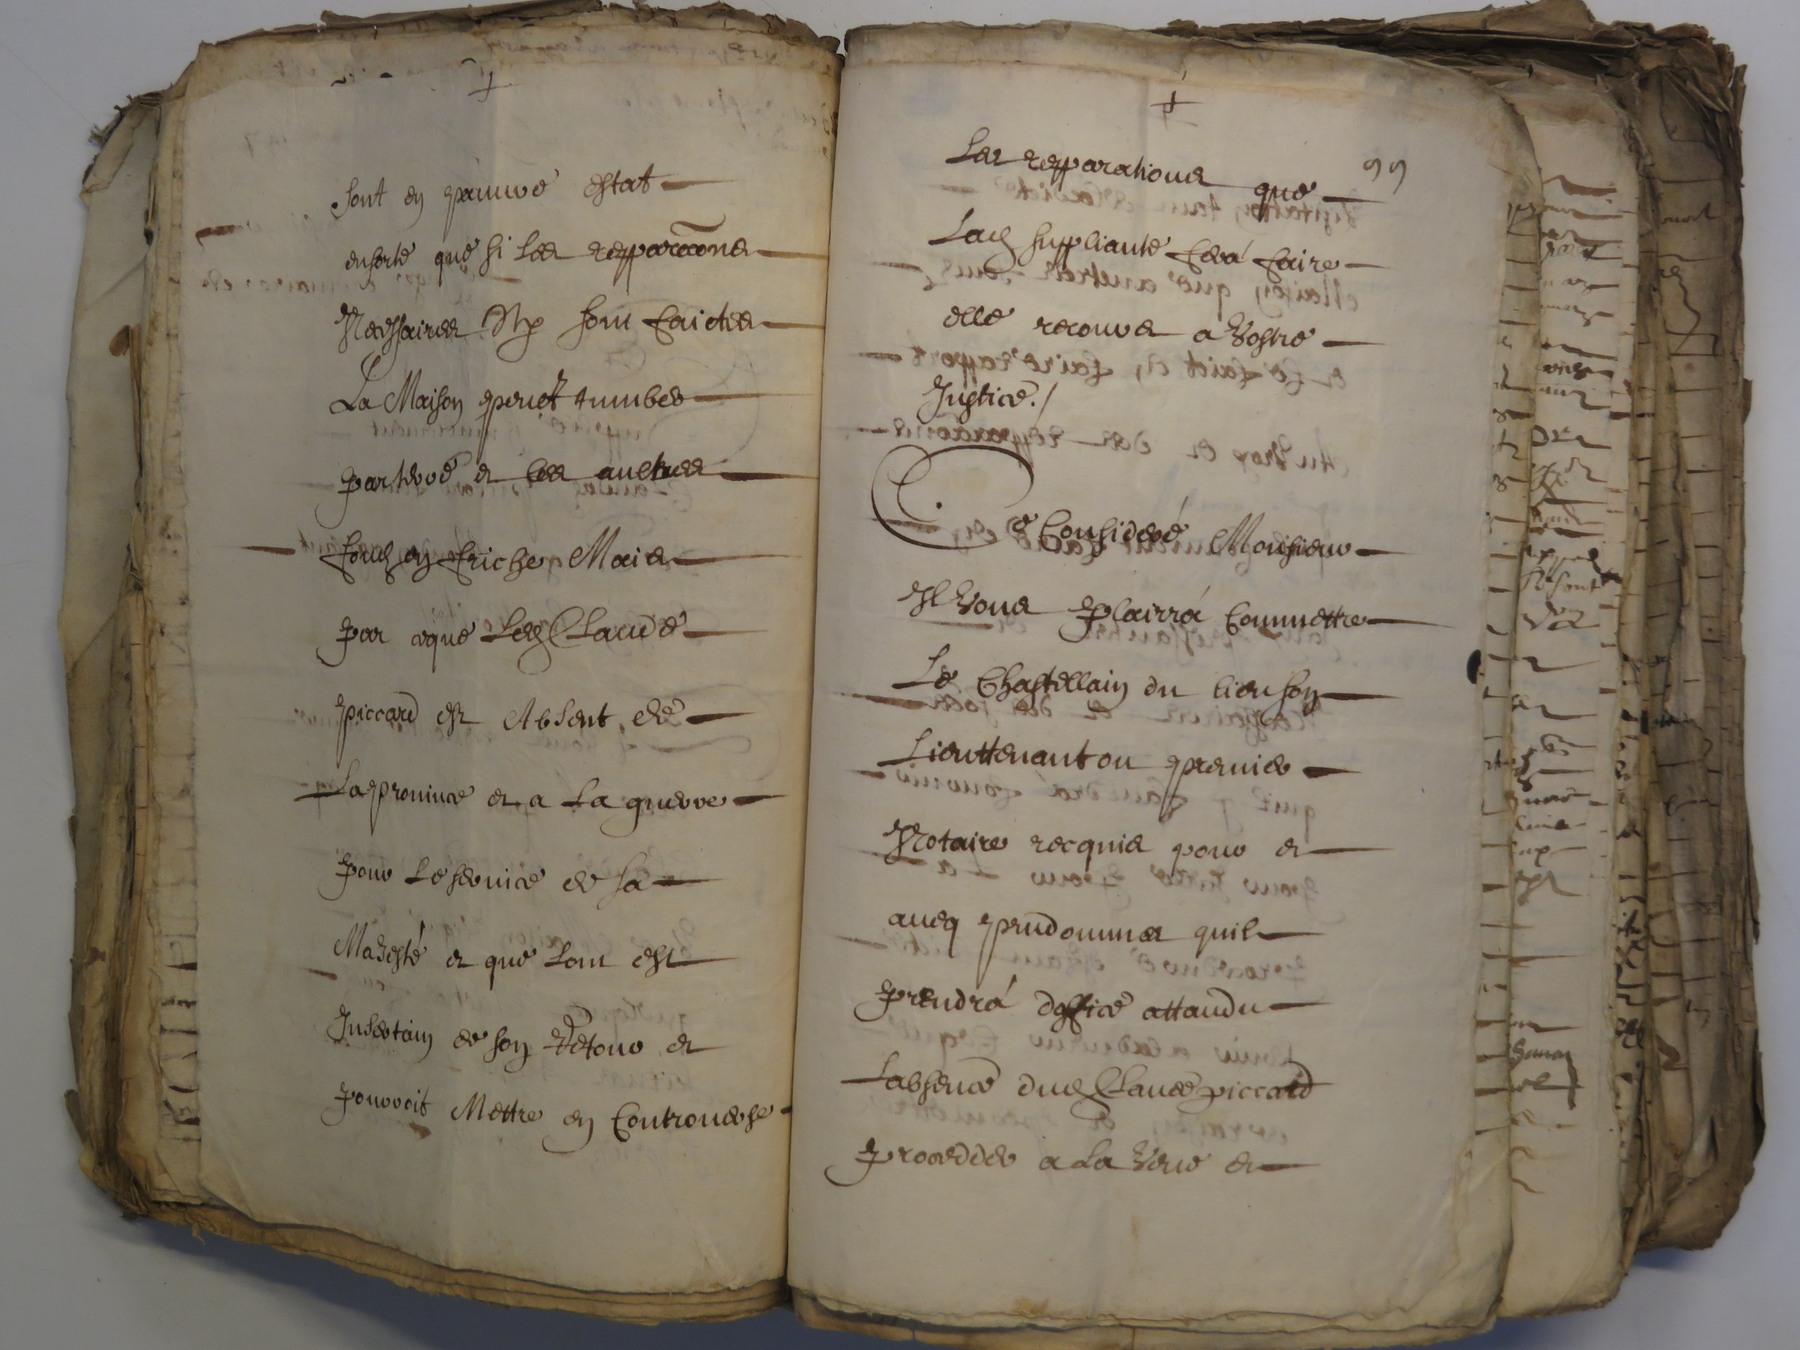 sont en pauuvre estat
ensorte que si les repparaõns
Necessaires Ny sont faictes
La Maison peult tumber
par terre et les aultres
fond en friche Mais
par ce que Led Claude
piccard est Absent de
La prouince et a La guerre
pour Le seruice de sa
Maiesté et que Lon est
Insertain de son Retour et
pourroit Mettre en Controuerse
99
Les repparations que
Lad suppliante fera faire
elle recourt a Vostre
Justice./
Ce Consideré Monsieur
Il Vous plairrá Commettre
Le Chastellain du lieu son
Lieuttenant ou premier
Nottaire recquis pour et
aueq prudommes quil
prendrá doffice attandu
Labsence dud Claude piccard
proceder a La Veue et